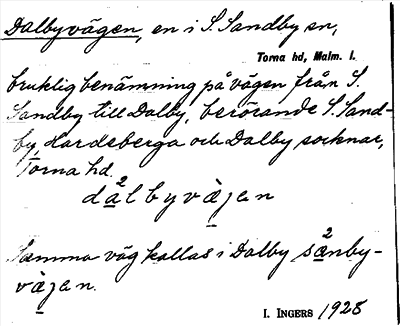 Dalbyvägen, en i S. Sandby sn,
Torna hd, Malm. l.
bruklig benämning på vägen från S.
Sandby till Dalby, berörande S. Sand-
by, Hardeberga och Dalby socknar,
Torna hd.
da²lbyvàjen
Samma väg kallas i Dalby sa²nby-
vàjen.
I. INGERS 1928